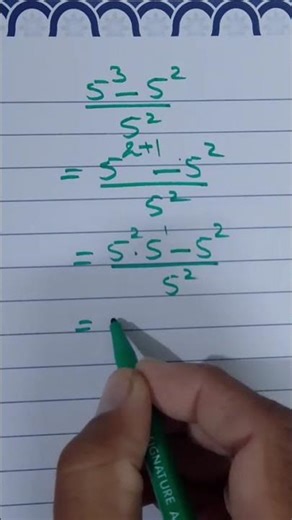 5³ - 5²
5²
= 5²⁺¹ - 5²
5²
= 5² · 5¹ - 5²
5²
=
SIGNATURE A